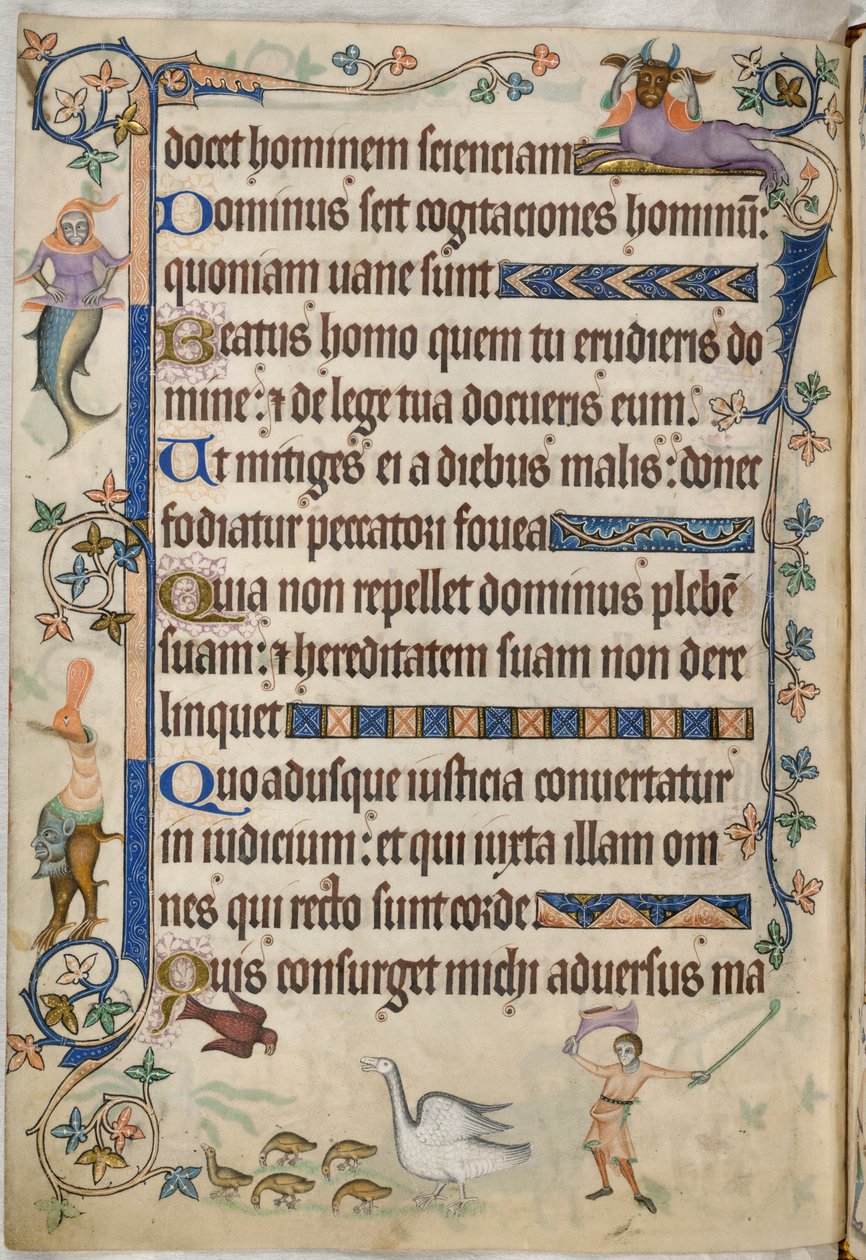 docet hominem scienciam
Dominus scit cogitaciones hominū:
quoniam uane sunt
Beatus homo quem tu erudieris do
mine: ⁊ de lege tua docueris eum.
Ut mitiges ei a diebus malis: donec
fodiatur peccatori fouea
Quia non repellet dominus plebē
suam: ⁊ hereditatem suam non dere
linquet
Quoadusque iusticia conuertatur
in iudicium: et qui iuxta illam om
nes qui recto sunt corde.
Quis consurget michi aduersus ma